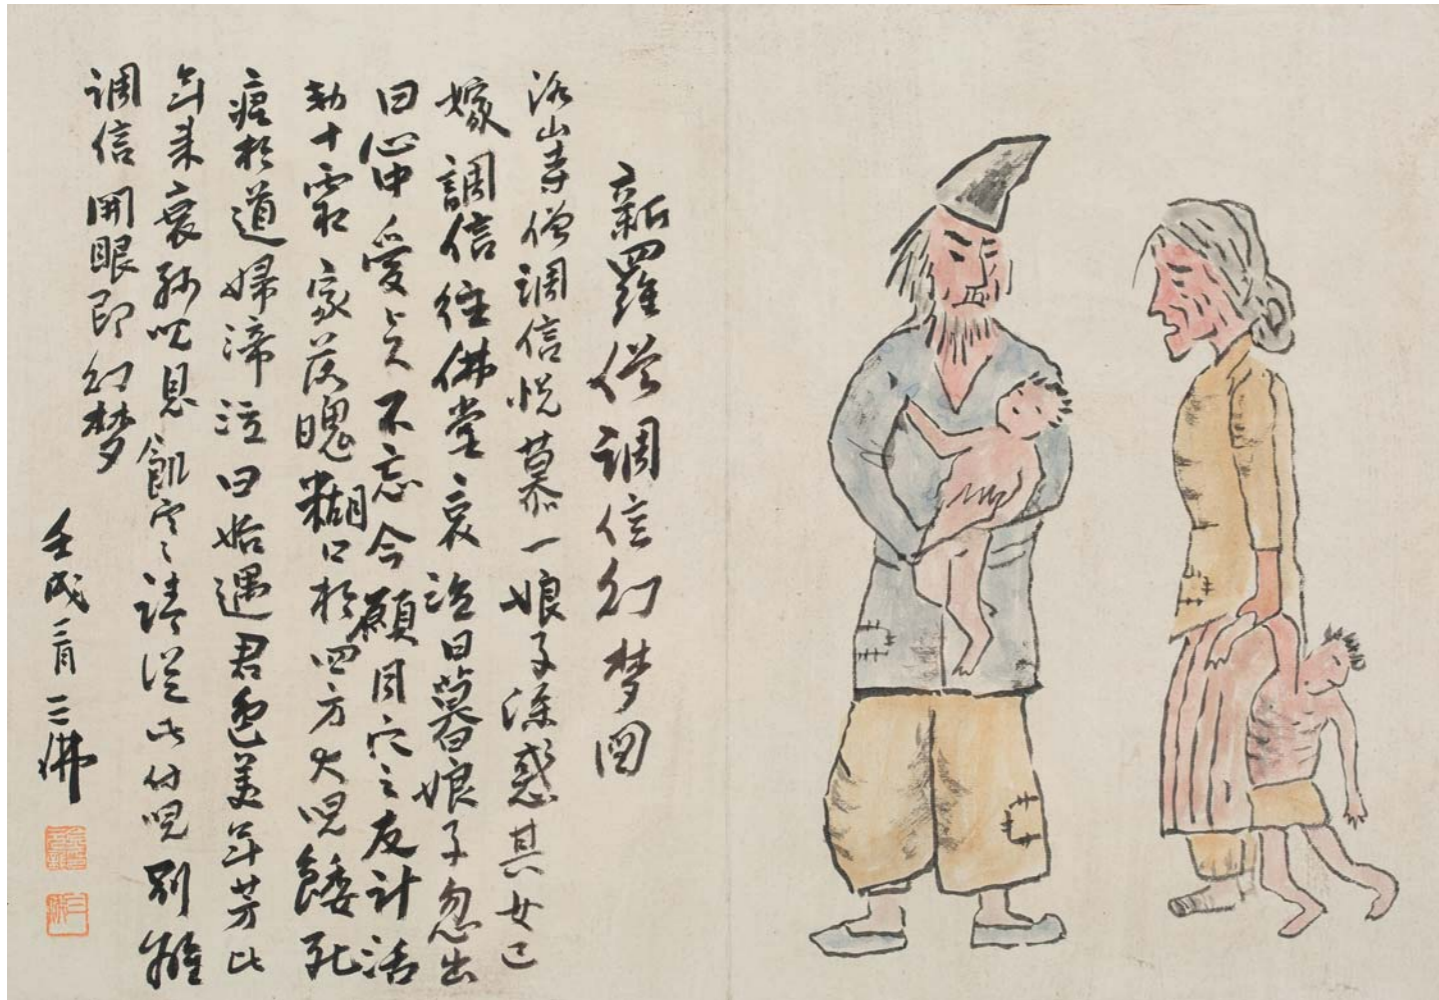 新羅僧调信幻梦図
洛山寺僧调信悦慕一娘子深惑其女已
嫁調信往佛堂哀泣日暮娘子忽出
曰心中愛之不忘今願同穴之友計活
十霜家落魄糊口於四方大児餧死
瘞於道婦涕泣曰始遇君色美年芳比
年来衰病児息飢寒請從此付児別離
调信開眼即幻梦
壬戌三月 三佛